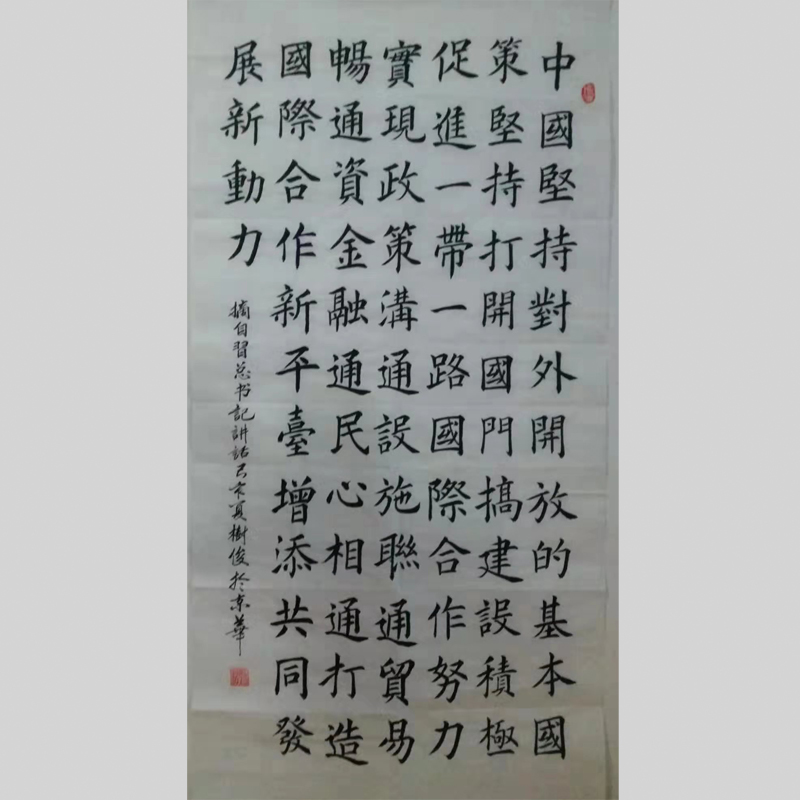 中國堅持對外開放的基本國
策堅持打開國門搞建設積極
促進一帶一路國際合作努力
實現政策溝通設施聯通貿易
暢通資金融通民心相通打造
國際合作新平臺增添共同發
展新動力
摘自習总书記讲話己亥夏樹俊於京華